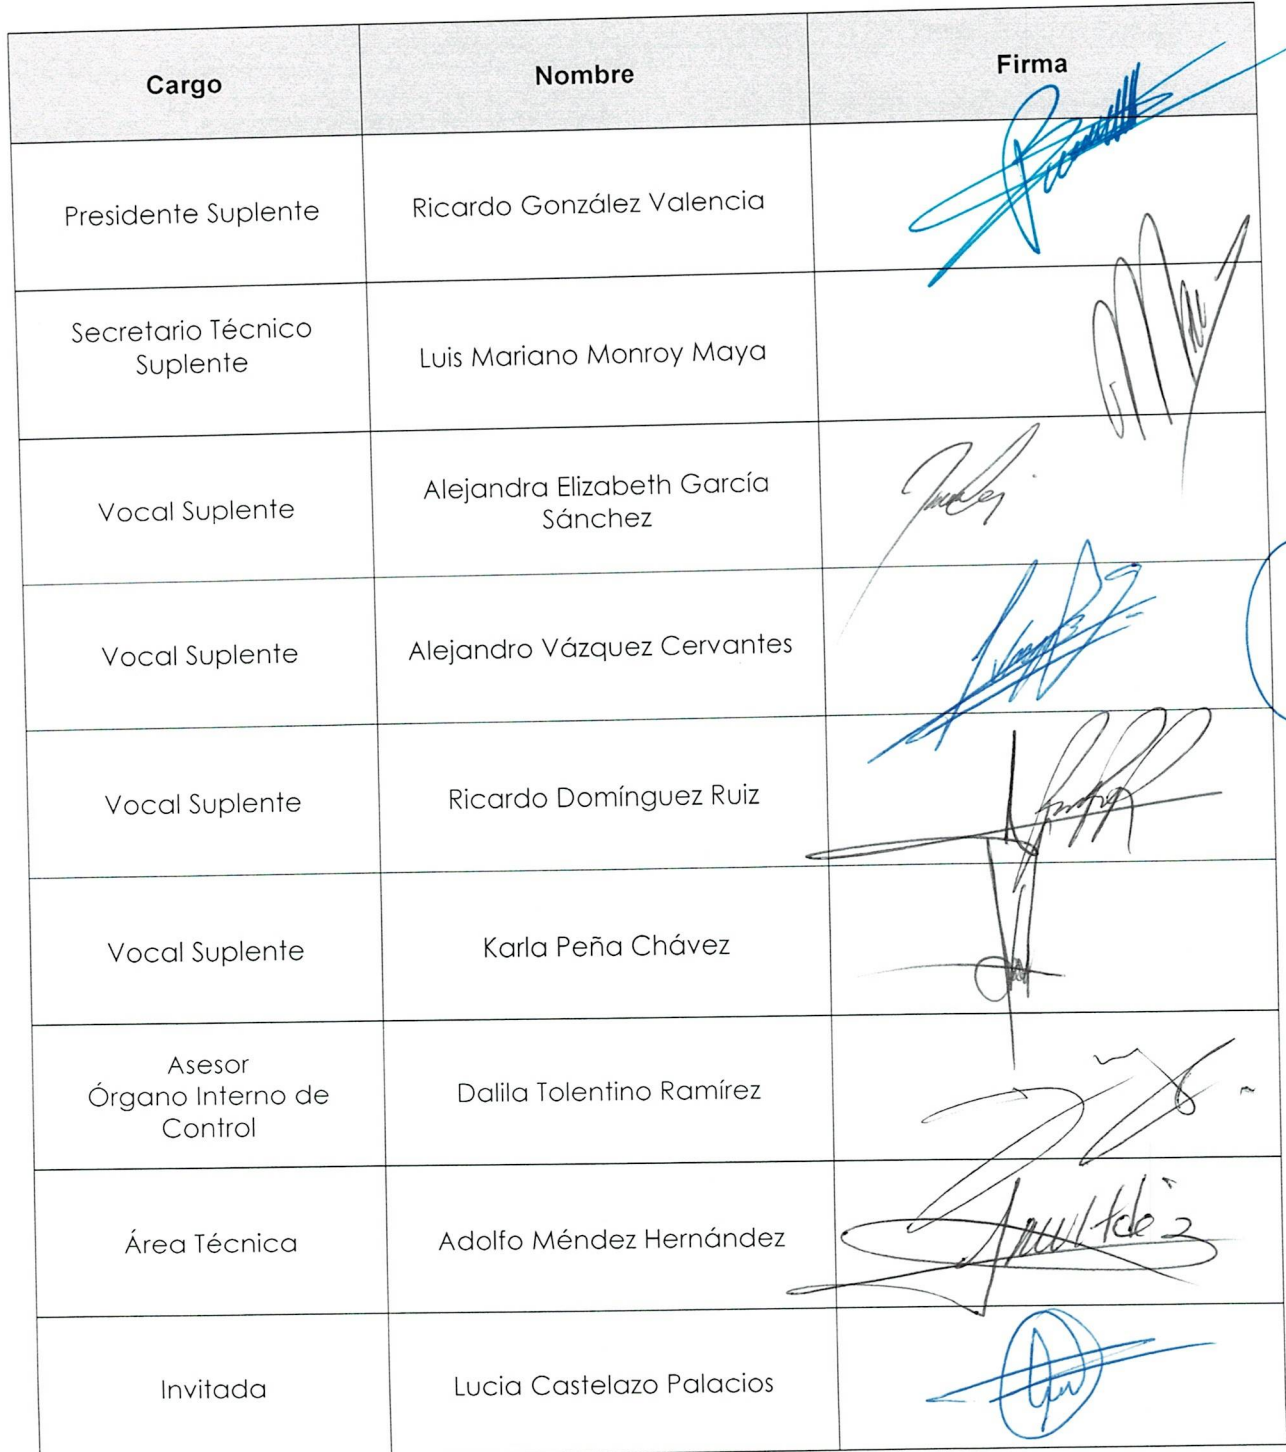 Cargo
Nombre
Firma
Presidente Suplente
Ricardo González Valencia
Secretario Técnico
Suplente
Luis Mariano Monroy Maya
Vocal Suplente
Alejandra Elizabeth García
Sánchez
Vocal Suplente
Alejandro Vázquez Cervantes
Vocal Suplente
Ricardo Domínguez Ruiz
Vocal Suplente
Karla Peña Chávez
Asesor
Órgano Interno de
Control
Dalila Tolentino Ramírez
Área Técnica
Adolfo Méndez Hernández
Invitada
Lucia Castelazo Palacios